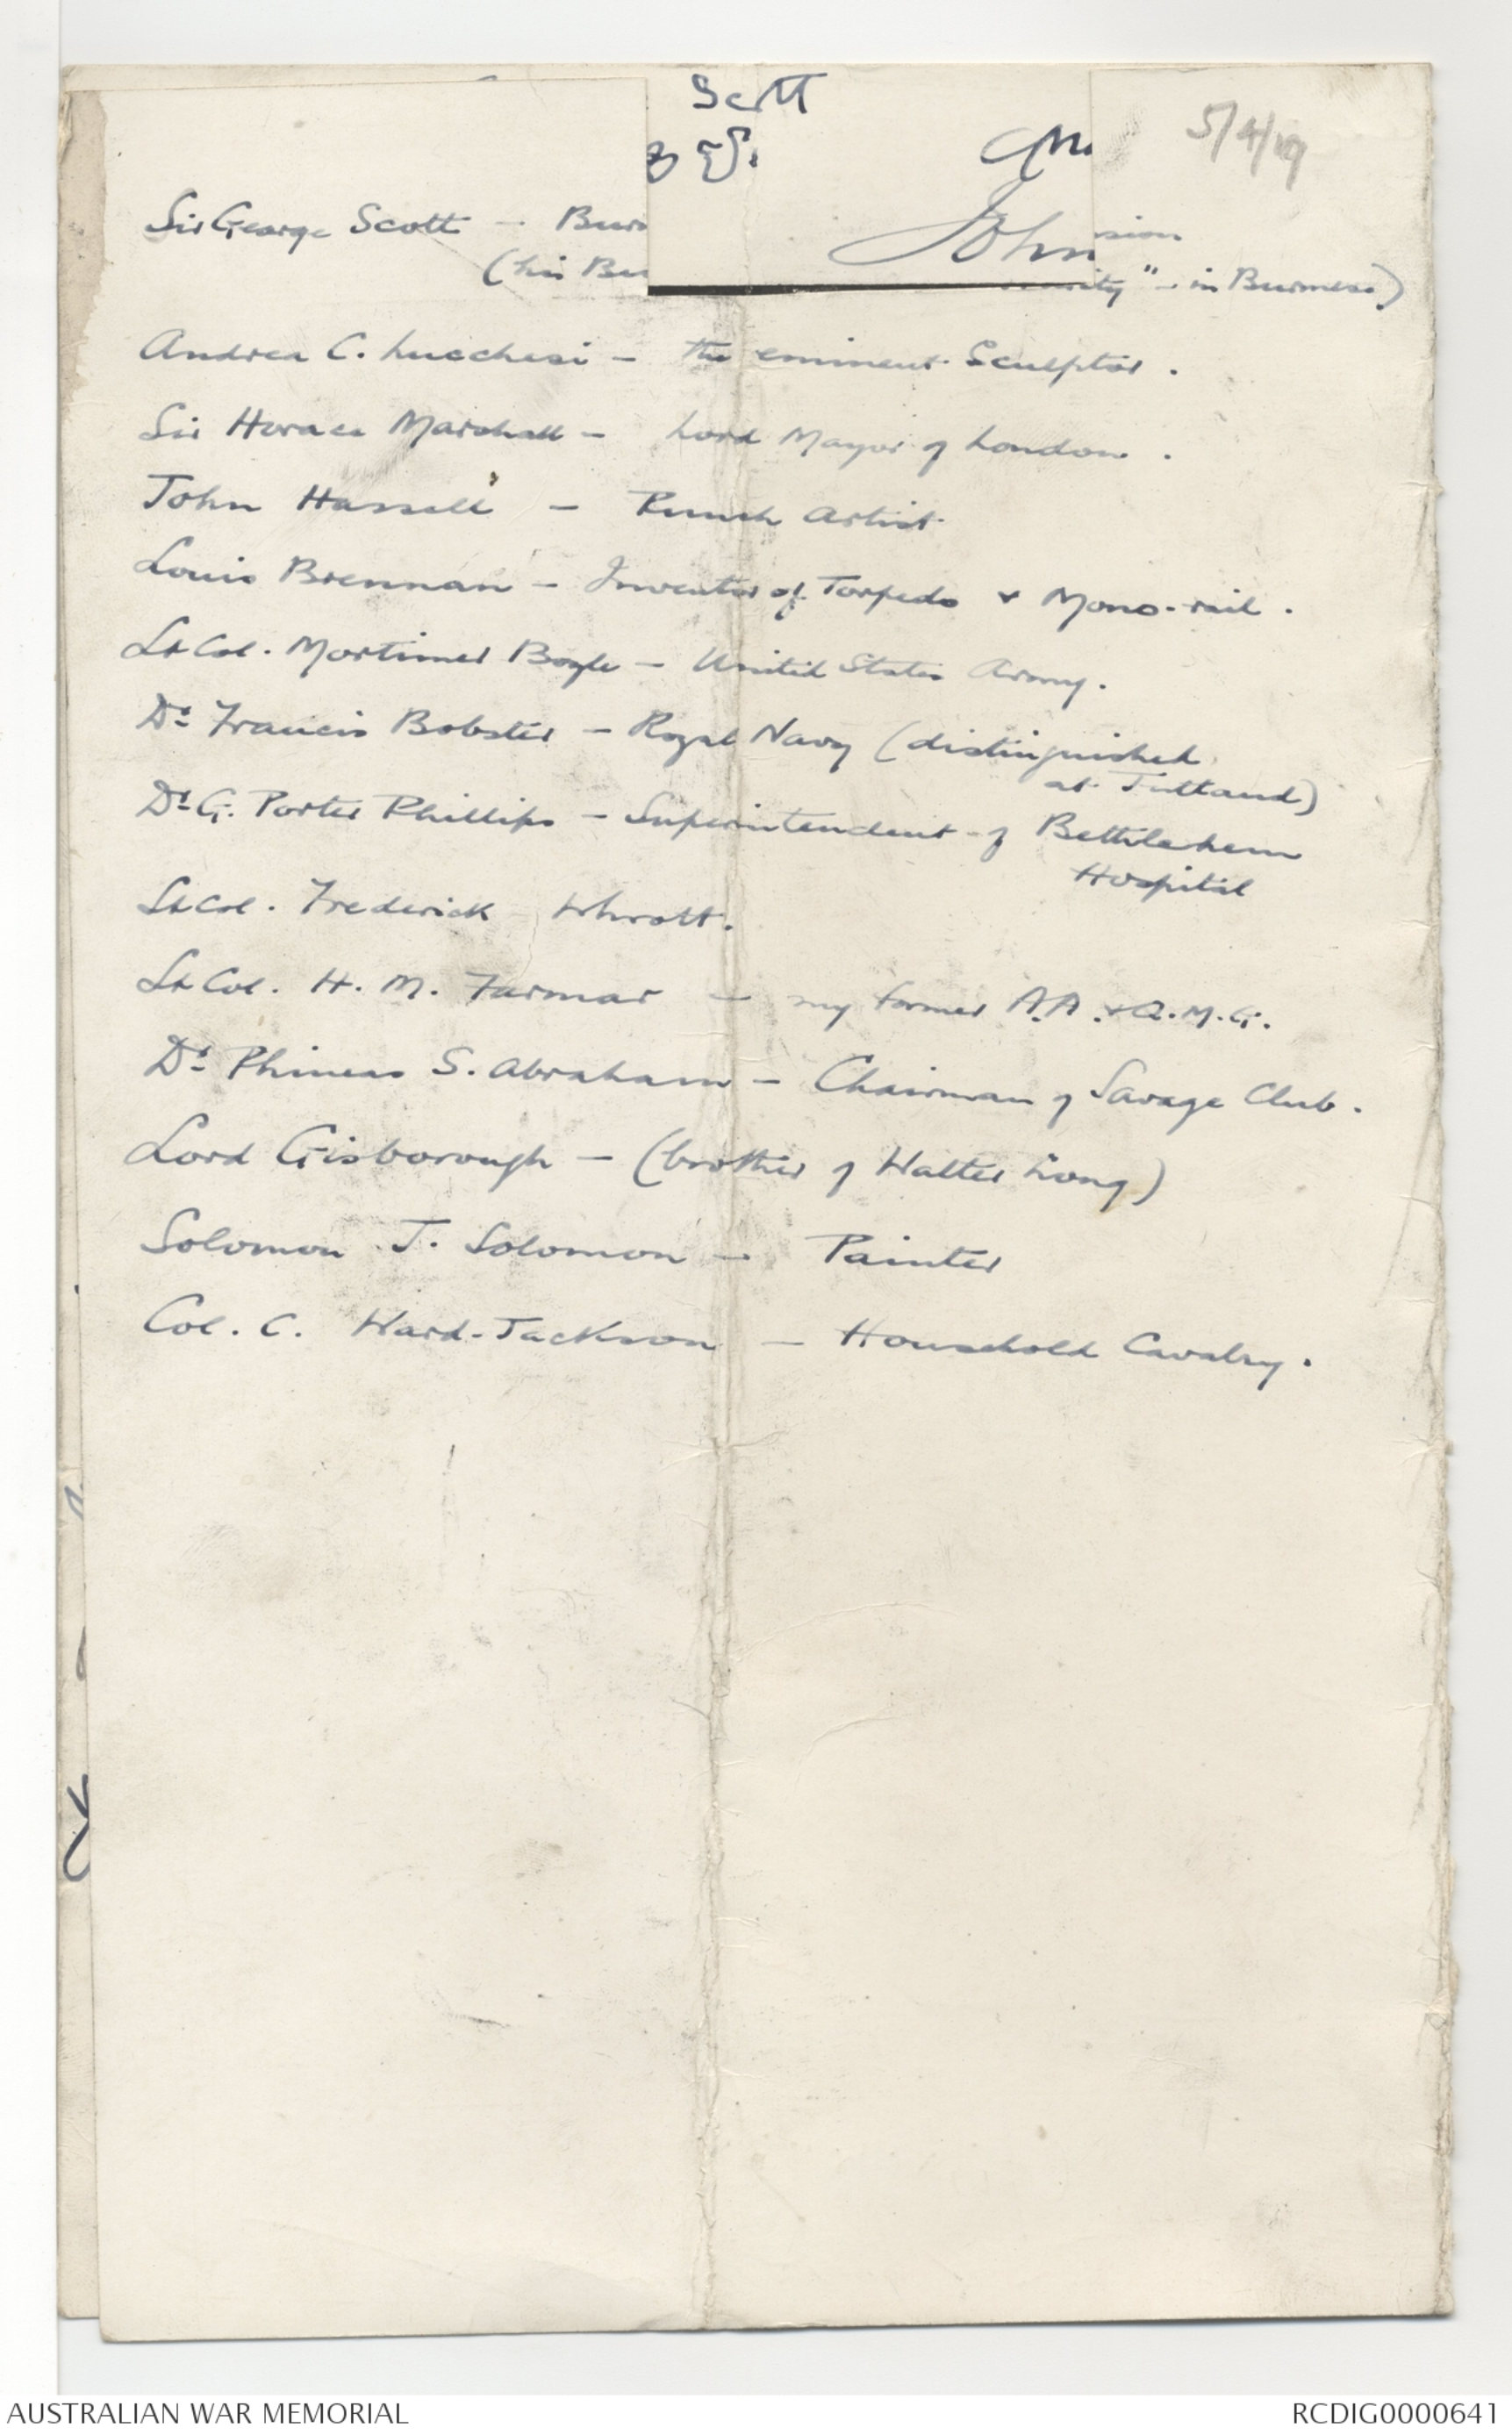 Scott
5/4/19
John
Sir George Scott — Burm
sion
(his Bur
" - in Burmese)
Andrea C. Lucchesi — the eminent Sculptor.
Sir Horace Marshall — Lord Mayor of London.
John Hassell — Punch Artist
Louis Brennan — Inventor of Torpedo & Mono-rail.
Lt Col. Mortimer Boyle — United States Army.
Dr Francis Bobster — Royal Navy (distinguished
at Jutland)
Dr G. Porter Phillips — Superintendent of Bethlehem
Hospital
Lt Col. Frederick
Lt Col. H. M. Farmar — my former A.A. & Q.M.G.
Dr Phineas S. Abraham — Chairman of Savage Club.
Lord Gisborough — (brother of Walter Long)
Solomon J. Solomon — Painter
Col. C. Ward-Jackson — Household Cavalry.
AUSTRALIAN WAR MEMORIAL
RCDIG0000641